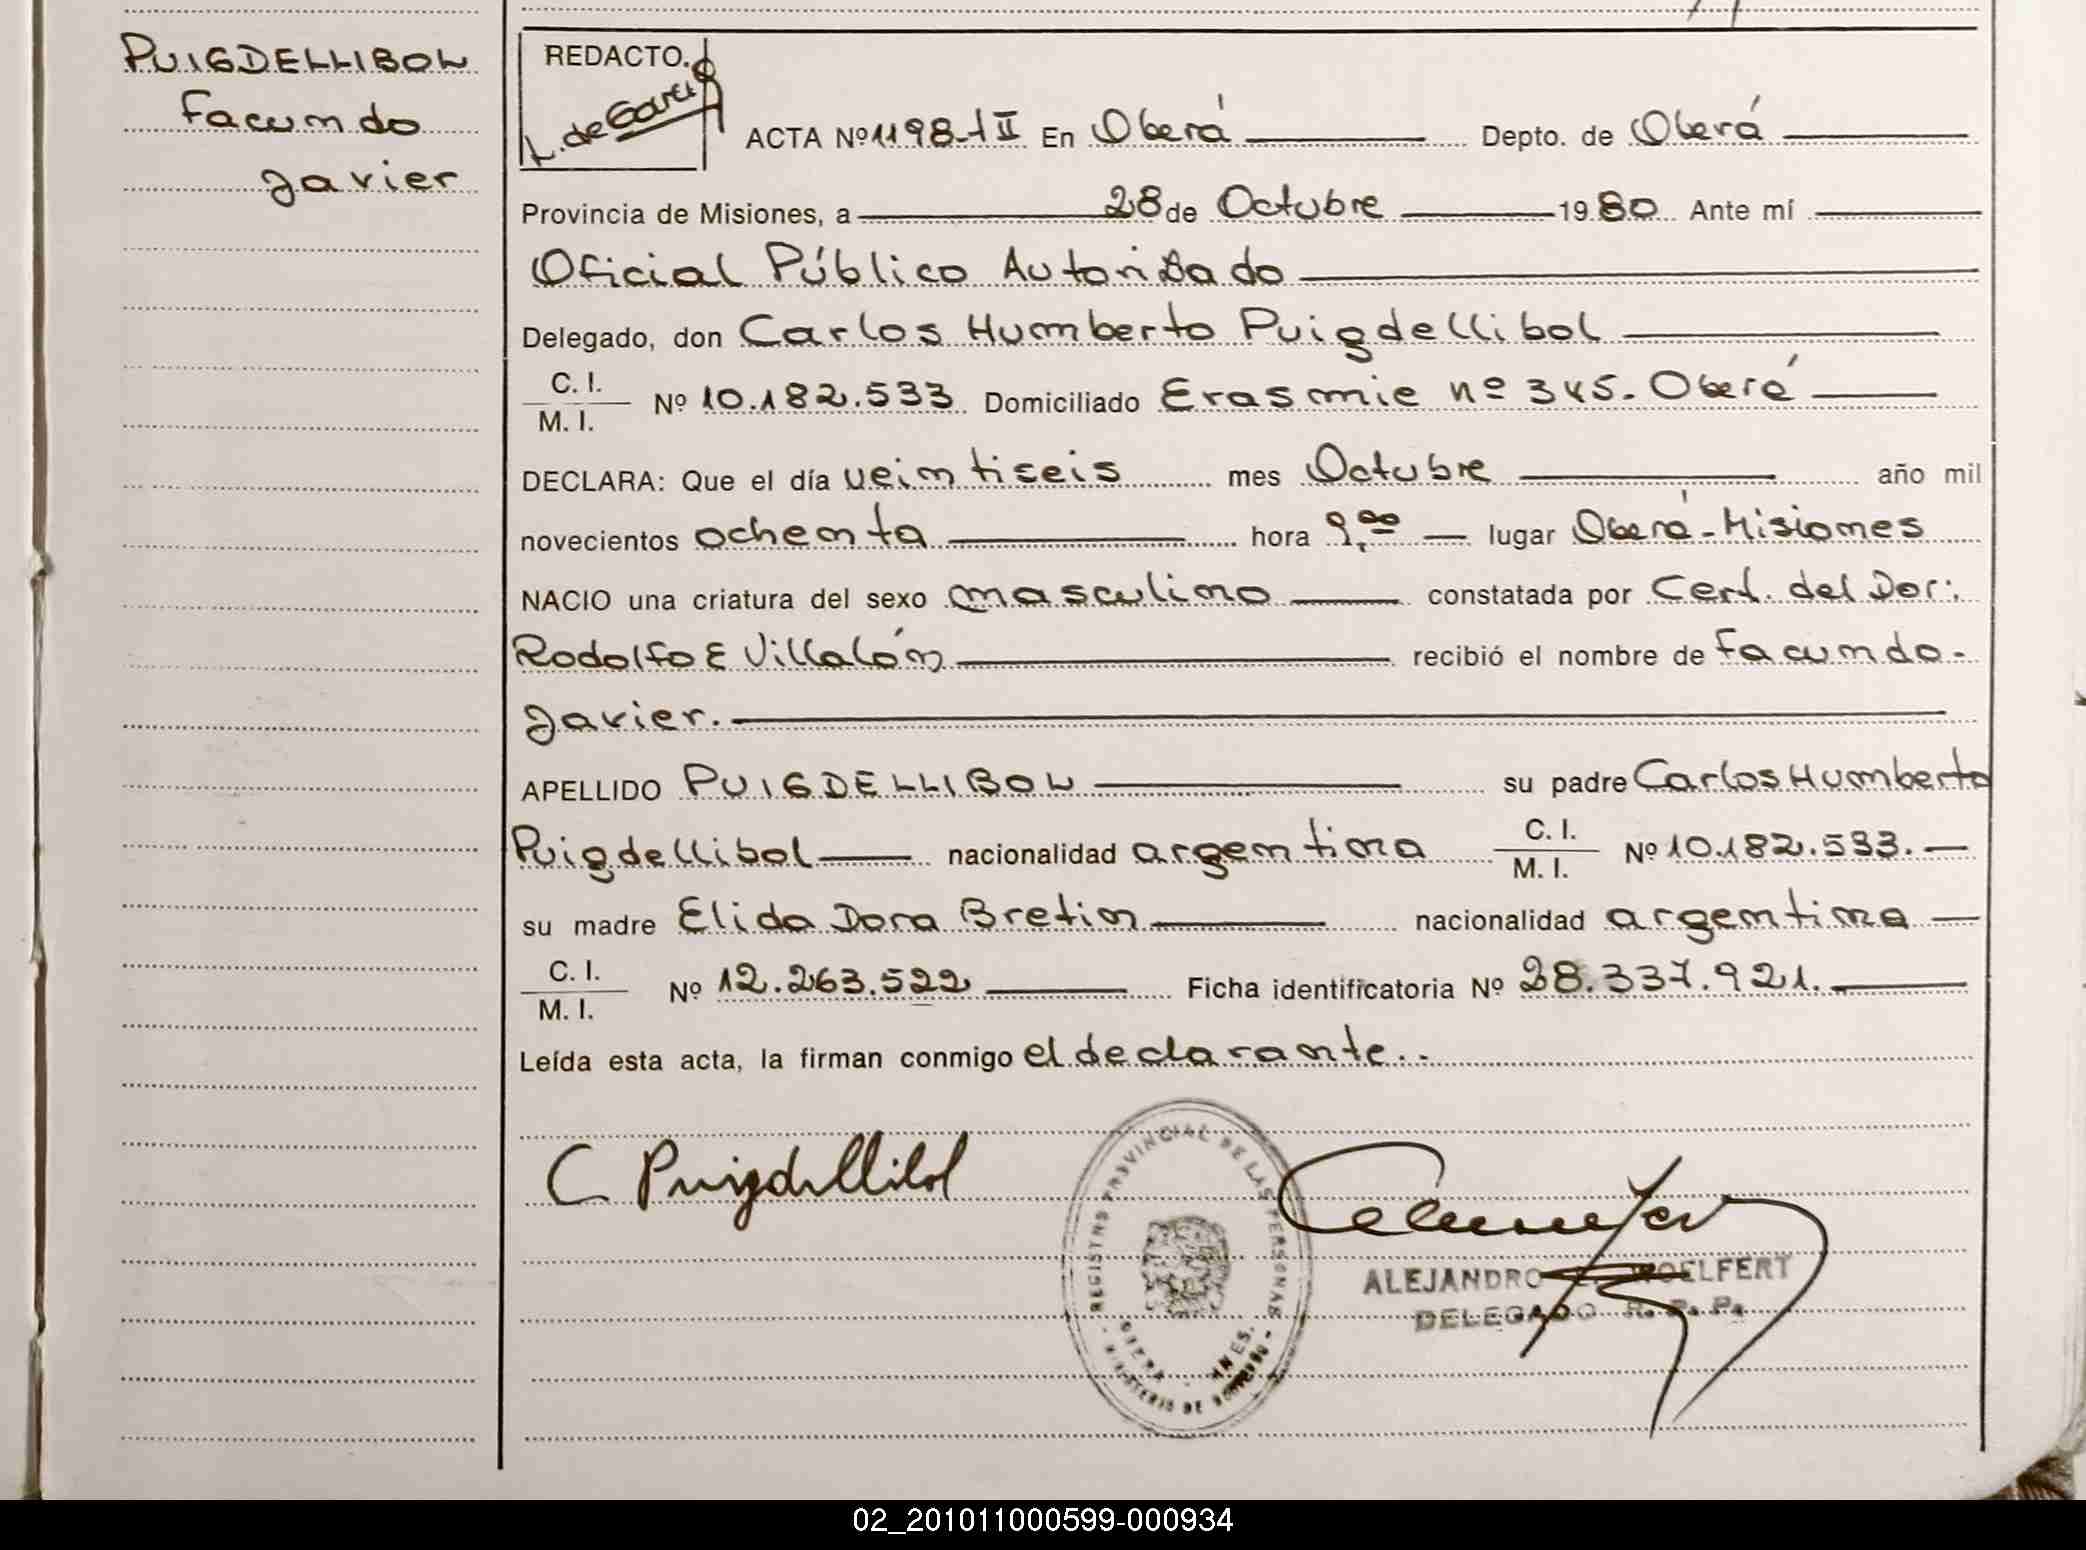 PUIGDELLIBOL
Facundo
Javier
REDACTO.
L. de Garci
ACTA Nº 1198-tII En Oberá Depto. de Oberá
Provincia de Misiones, a 28 de Octubre 1980 Ante mí
Oficial Público Autorizado
Delegado, don Carlos Humberto Puigdellibol
C. I.
M. I. Nº 10.182.533 Domiciliado Erasmie nº 345. Oberá
DECLARA: Que el día veintiseis mes Octubre año mil
novecientos ochenta hora 9,00 lugar Oberá - Misiones
NACIO una criatura del sexo masculino constatada por Cert. del Dor:
Rodolfo E Villalón recibió el nombre de Facundo-
Javier.
APELLIDO PUIGDELLIBOL su padre Carlos Humberto
Puigdellibol nacionalidad argentina C. I.
M. I. Nº 10.182.533.
su madre Elida Dora Bretin nacionalidad argentina
C. I.
M. I. Nº 12.263.522 Ficha identificatoria Nº 28.337.921.
Leída esta acta, la firman conmigo el declarante..
C Puigdellibol
REGISTRO PROVINCIAL DE LAS PERSONAS
MINISTERIO DE GOBIERNO
ALEJANDRO OELFERT
DELEGADO R. P. P.
02_201011000599-000934